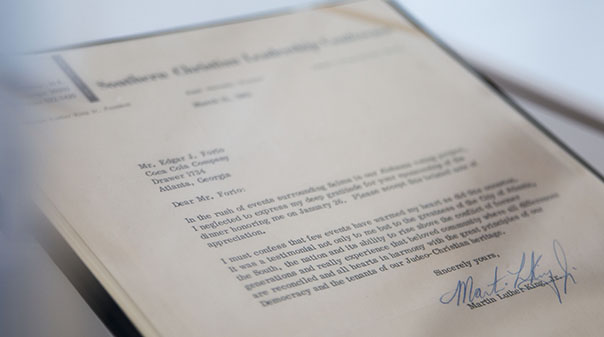 Southern Christian Leadership Conference
March
Mr. Edgar J. Forio
Coca Cola Company
Drawer 1734
Atlanta, Georgia
Dear Mr. Forio:
In the rush of events surrounding Selma in our Alabama project,
I neglected to express my deep gratitude for your sponsorship of the
dinner honoring me on January 26. Please accept this belated note of
appreciation.
I must confess that few events have warmed my heart as did this occasion.
It was a testimonial not only to me but to the greatness of the City of Atlanta,
the South, the nation and its ability to rise above the conflict of former
generations and really experience that beloved community where all differences
are reconciled and all hearts in harmony with the great principles of our
Democracy and the tenants of our Judeo-Christian heritage.
Sincerely yours,
Martin Luther King Jr.
Martin Luther King, Jr.